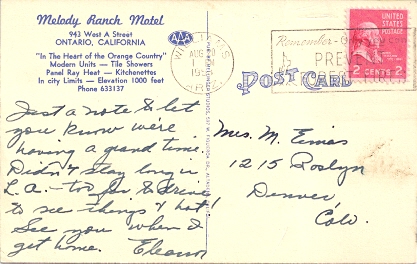 Melody Ranch Motel
943 West A Street
ONTARIO, CALIFORNIA
"In The Heart of the Orange Country"
Modern Units — Tile Showers
Panel Ray Heat — Kitchenettes
In city Limits — Elevation 1000 feet
Phone 633137
AAA
WILLIAMS
AUG
ARIZ.
Remember -
PREVENT
UNITED STATES
POSTAGE
2 CENTS 2
POST CARD
Just a note to let
you know we're
having a grand time.
Didn't stay long in
L.A. - too far to drive
to see things & hot!
See you when I
get home. Eleanor
Mrs. M. Eimas
1215 Roslyn
Denver
Colo.